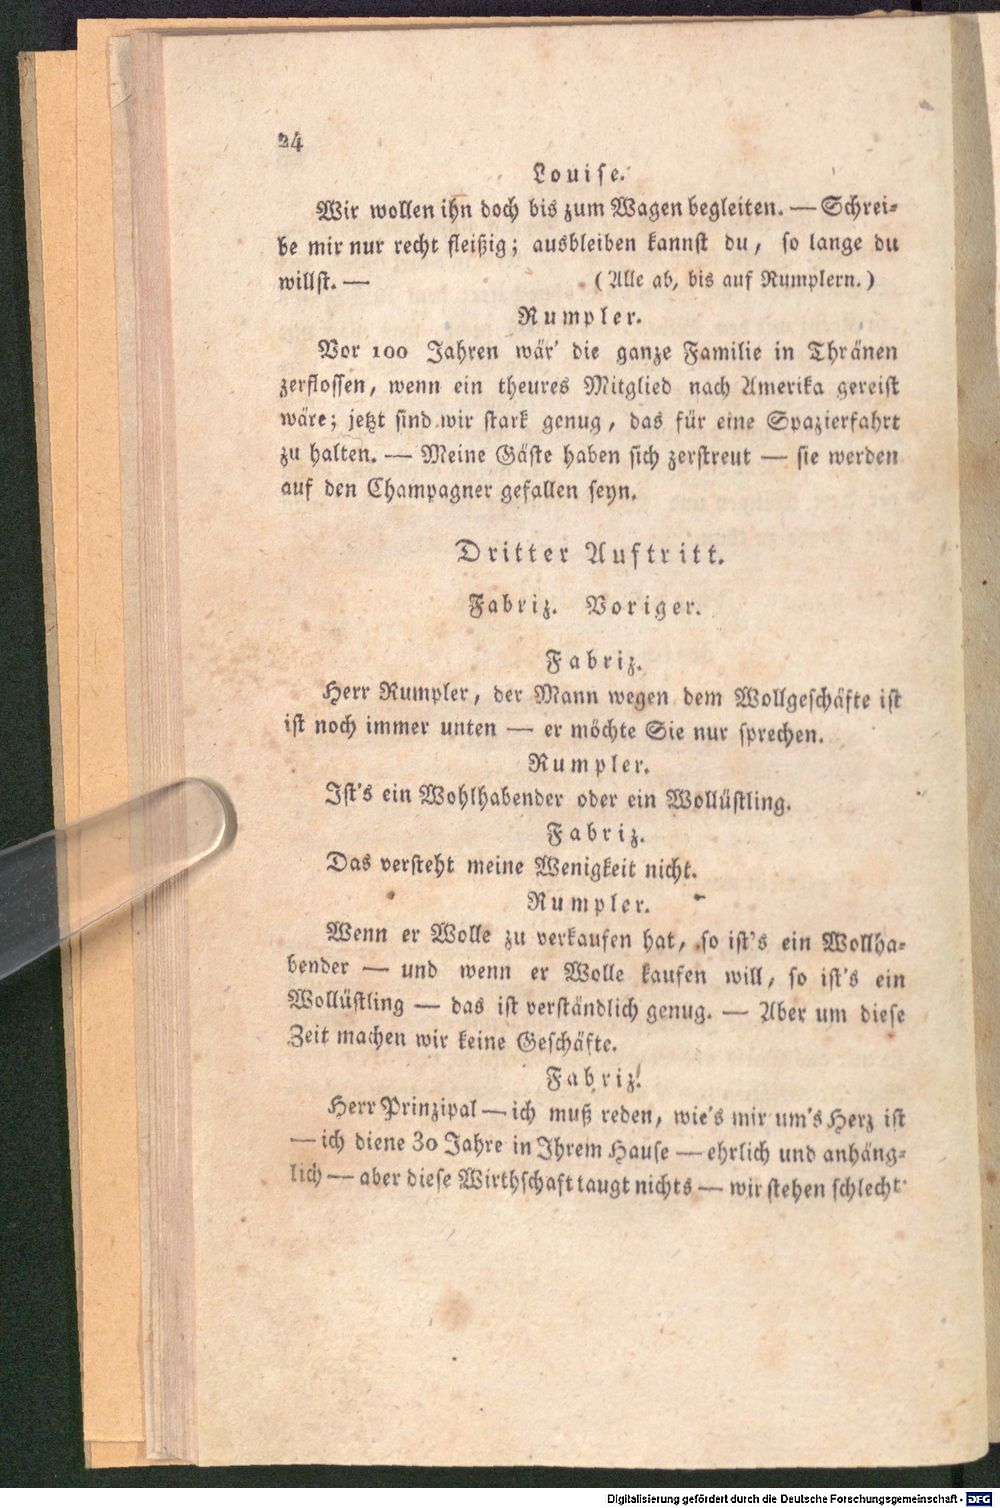 24
Louise.
Wir wollen ihn doch bis zum Wagen begleiten. — Schrei-
be mir nur recht fleißig; ausbleiben kannst du, so lange du
willst. — (Alle ab, bis auf Rumplern.)
Rumpler.
Vor 100 Jahren wär' die ganze Familie in Thränen
zerflossen, wenn ein theures Mitglied nach Amerika gereist
wäre; jetzt sind wir stark genug, das für eine Spazierfahrt
zu halten. — Meine Gäste haben sich zerstreut — sie werden
auf den Champagner gefallen seyn.
Dritter Auftritt.
Fabriz. Voriger.
Fabriz.
Herr Rumpler, der Mann wegen dem Wollgeschäfte ist
ist noch immer unten — er möchte Sie nur sprechen.
Rumpler.
Ist's ein Wohlhabender oder ein Wollüstling.
Fabriz.
Das versteht meine Wenigkeit nicht.
Rumpler.
Wenn er Wolle zu verkaufen hat, so ist's ein Wollha-
bender — und wenn er Wolle kaufen will, so ist's ein
Wollüstling — das ist verständlich genug. — Aber um diese
Zeit machen wir keine Geschäfte.
Fabriz.
Herr Prinzipal — ich muß reden, wie's mir um's Herz ist
— ich diene 30 Jahre in Ihrem Hause — ehrlich und anhäng-
lich — aber diese Wirthschaft taugt nichts — wir stehen schlecht
Digitalisierung gefördert durch die Deutsche Forschungsgemeinschaft - DFG